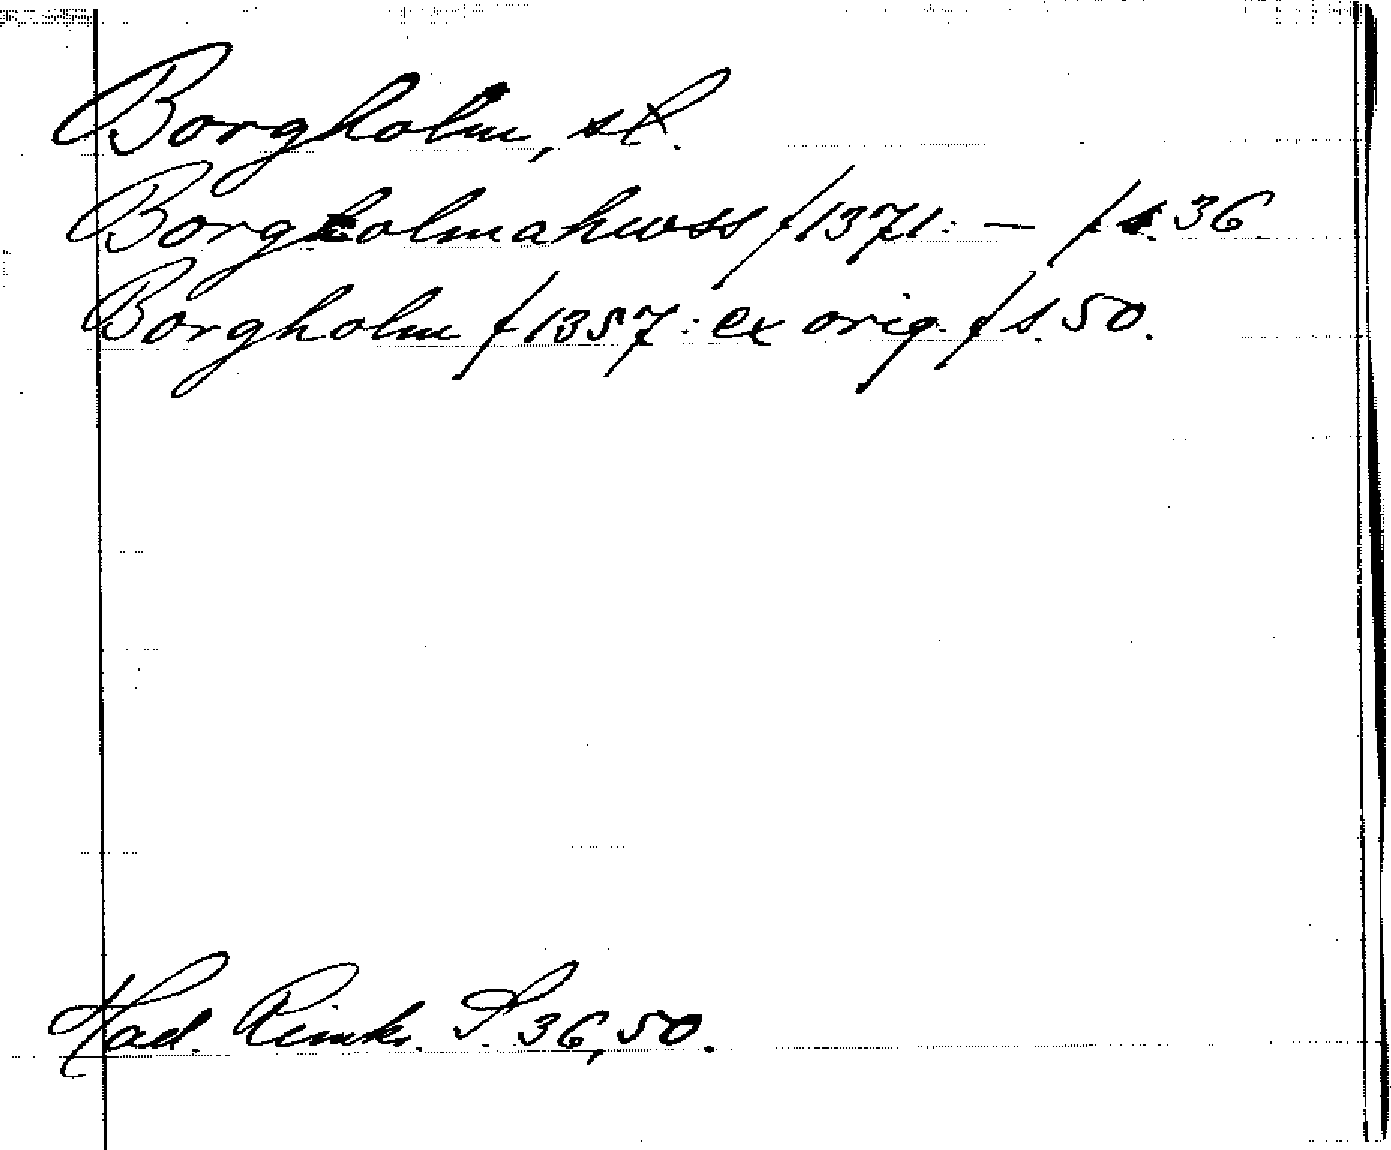 Borgholm, sl.
Borgholmahwss /1371: — /s. 36.
Borgholm /1357: ex orig. / s. 50.
Had. Rimkr. S. 36, 50.